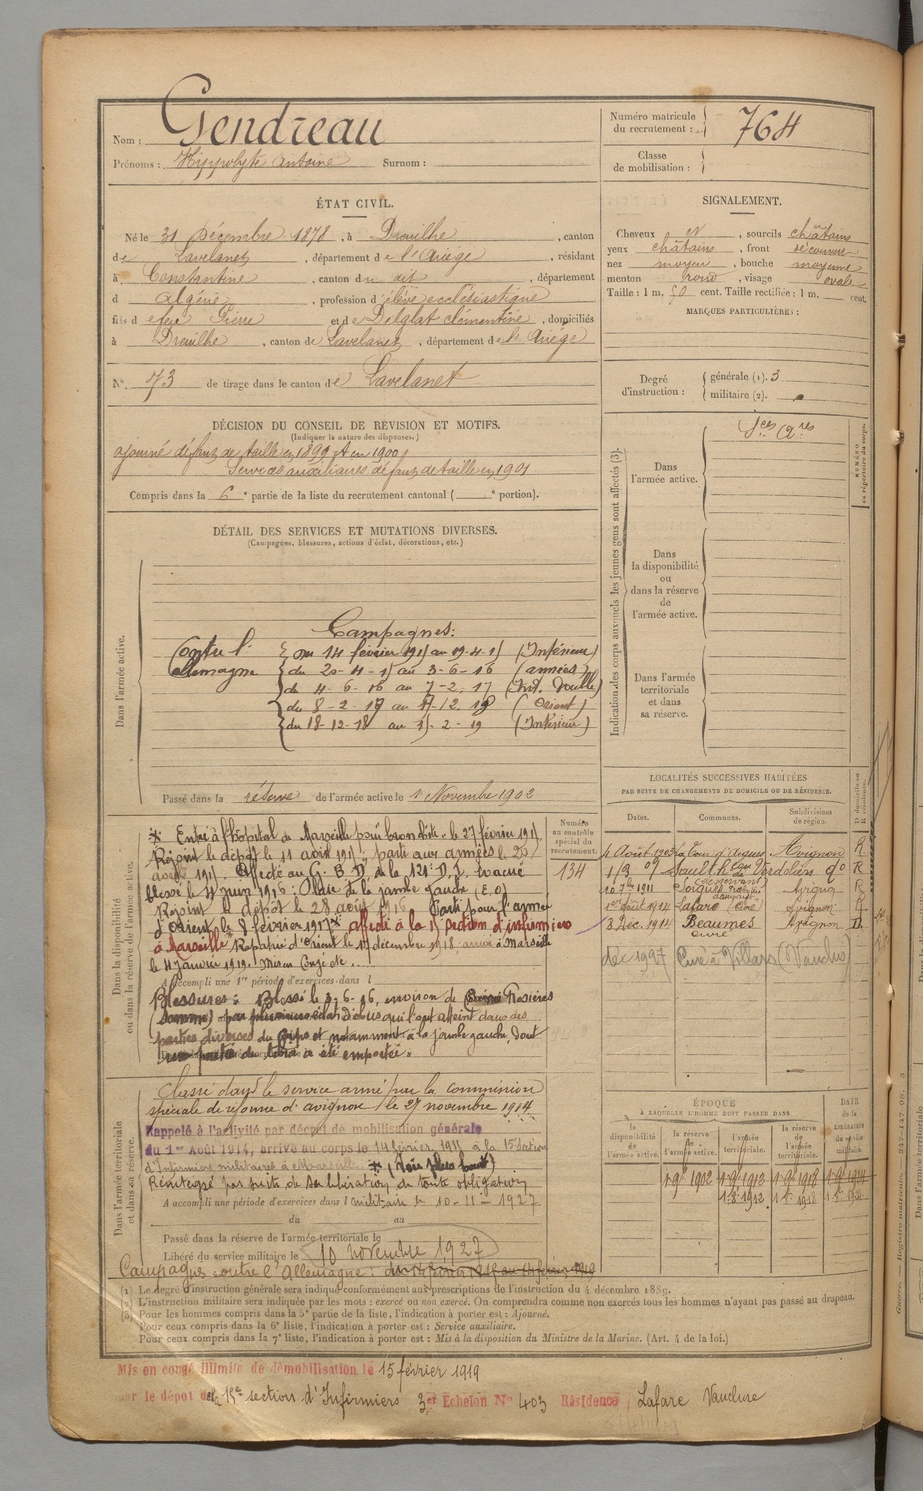 Nom : Gendreau
Prénoms : Hippolyte Antoine Surnom :
Numéro matricule
du recrutement : 764
Classe
de mobilisation :
ÉTAT CIVIL.
Né le 31 Décembre 1878, à Dreuilhe, canton
de Lavelanet, département de l'Ariège, résidant
à Constantine, canton du dit, département
d Algérie, profession d'élève ecclésiastique
fils de feu Pierre et de Delglat Clémentine, domiciliés
à Dreuilhe, canton de Lavelanet, département de l'Ariège
N° 73 de tirage dans le canton de Lavelanet
SIGNALEMENT.
Cheveux N, sourcils châtains
yeux châtains, front découvert
nez moyen, bouche moyenne
menton rond, visage ovale
Taille : 1 m. 50 cent. Taille rectifiée : 1 m. cent.
MARQUES PARTICULIÈRES :
Degré
d'instruction :
générale (1). 3
militaire (2).
DÉCISION DU CONSEIL DE RÉVISION ET MOTIFS.
(Indiquer la nature des dispenses.)
ajourné déf. de taille en 1899 et en 1900
Services auxiliaires déf. de taille en 1901
Compris dans la 6e partie de la liste du recrutement cantonal ( e portion).
DÉTAIL DES SERVICES ET MUTATIONS DIVERSES.
(Campagnes, blessures, actions d'éclat, décorations, etc.)
Dans l'armée active.
Campagnes :
Contre l'
Allemagne
du 14 février 1915 au 19-4-15 (Intérieur)
du 20-4-15 au 3-6-16 (armées)
du 4-6-16 au 7-2-17 (Int.
du 8-2-17 au 17-12-18 (Orient)
du 18-12-18 au 15-2-19 (Intérieur)
Passé dans la réserve de l'armée active le 1 Novembre 1902
Indication des corps auxquels les jeunes gens sont affectés (3).
Dans
l'armée active.
Dans
la disponibilité
ou
dans la réserve
de
l'armée active.
Dans l'armée
territoriale
et dans
sa réserve.
NUMÉRO
au répertoire du corps.
Dans la disponibilité
ou dans la réserve de l'armée active.
Numéro
au contrôle
spécial du
recrutement.
134
* Entré à l'hôpital de Marseille pour bronchite le 27 février 191
Rejoint le dépôt le 11 août 191 parti aux armées le 20
août 191 Affecté au G. B. D. de la 121e D. I. évacué
blessé le 4 juin 1916 : Plaie de la jambe gauche (E. O)
Rejoint le dépôt le 28 août 1916 Parti pour l'armée
d'Orient le 8 février 1917 * affecté à la 15 section d'infirmiers
à Marseille Rapatrié d'Orient le 17 décembre 1918 arrivé à Marseille
le 4 janvier 1919. Mis en Congé etc...
A accompli une 1re période d'exercices dans l
Blessures : Blessé le 3-6-16, environ de Rosières
(Somme) par plusieurs éclats d'obus qui l'ont atteint dans des
parties diverses du corps et notamment à la jambe gauche, dont
une partie du tibia a été emportée.
LOCALITÉS SUCCESSIVES HABITÉES
PAR SUITE DE CHANGEMENTS DE DOMICILE OU DE RÉSIDENCE.
Dates. Communes. Subdivisions
de région.
4 Août 190 La Tour d'Aigues Avignon R
1/3 09 Sault h. de Verdolier do R
10 7bre 1911 Sorgues Avignon R
1er Août 1914 Lafare (Curé) Avignon R
8 Dec. 1914 Beaumes Avignon D
curé
dec 1927 Curé à Villars (Vaucluse)
Dans l'armée territoriale
et dans sa réserve.
Classé dans le service armé par la commission
spéciale de réforme d'Avignon le 27 novembre 1914
Rappelé à l'activité par décret de mobilisation générale
du 1er Août 1914, arrivé au corps le 14 février 1915 à la 15e section
d'Infirmiers militaires à Marseille * (voir plus haut)
Réintégré par suite de sa libération de toute obligation
A accompli une période d'exercices dans l militaire le 10-11-1927
du au
Passé dans la réserve de l'armée territoriale le
Libéré du service militaire le 10 novembre 1927
Campagnes contre l'Allemagne :
ÉPOQUE
À LAQUELLE L'HOMME DOIT PASSER DANS
la
disponibilité
de
l'armée active.
la réserve
de
l'armée active.
l'armée
territoriale.
la réserve
de
l'armée
territoriale.
DATE
de la
libération
du service
militaire.
1 9bre 1902
(1) Le degré d'instruction générale sera indiqué conformément aux prescriptions de l'instruction du 4 décembre 1889.
(2) L'instruction militaire sera indiquée par les mots : exercé ou non exercé. On comprendra comme non exercés tous les hommes n'ayant pas passé au drapeau.
(3) Pour les hommes compris dans la 5e partie de la liste, l'indication à porter est : Ajourné.
Pour ceux compris dans la 6e liste, l'indication à porter est : Service auxiliaire.
Pour ceux compris dans la 7e liste, l'indication à porter est : Mis à la disposition du Ministre de la Marine. (Art. 4 de la loi.)
Mis en congé illimité de démobilisation le 15 février 1919
par le dépôt de la 15e section d'Infirmiers 3er Échelon N° 403 Résidence : Lafare Vaucluse